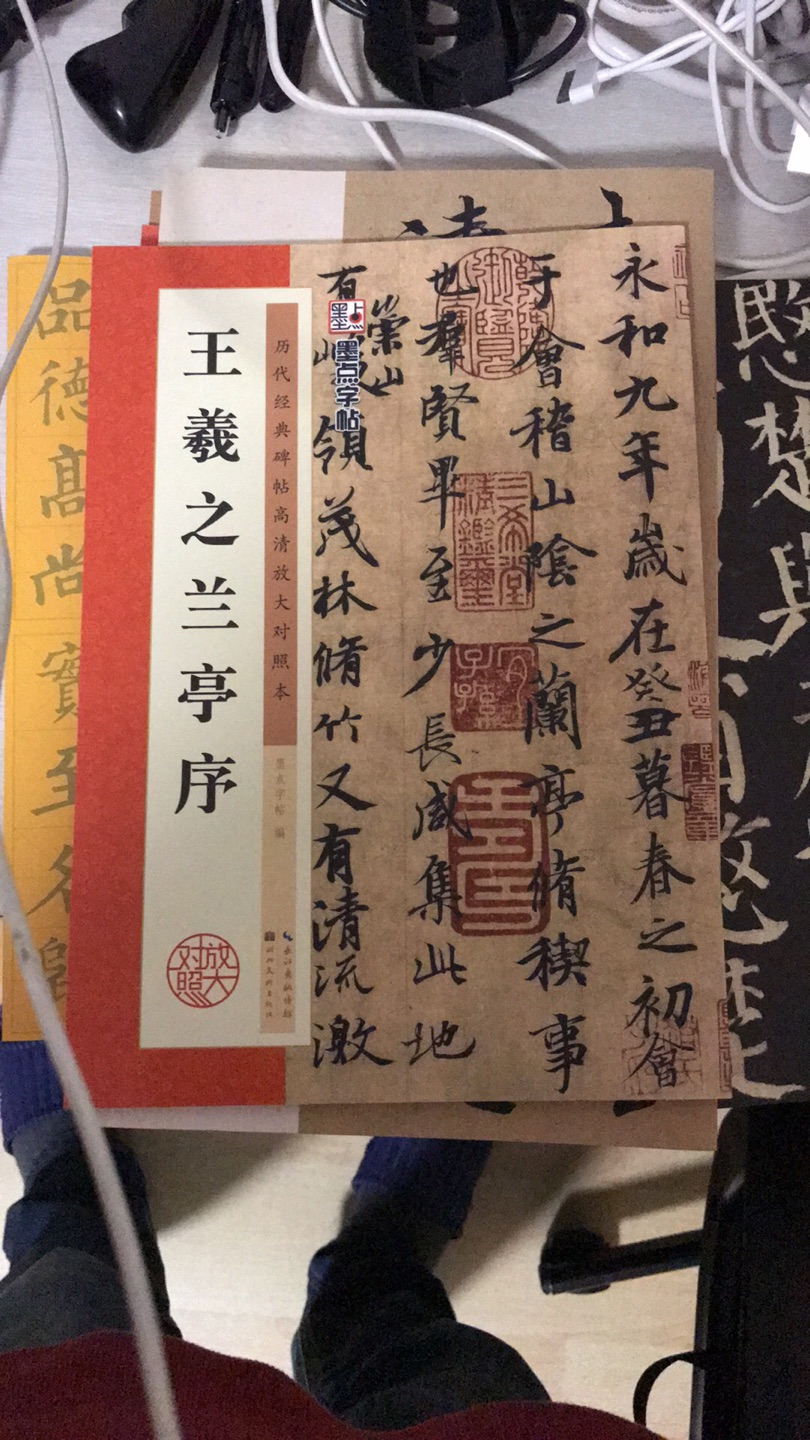 王羲之兰亭序
历代经典碑帖高清放大对照本
墨点字帖 编
放大对照
墨点
墨点字帖
永和九年歲在癸丑暮春之初會
于會稽山陰之蘭亭脩稧事
也羣賢畢至少長咸集此地
有崇山領茂林脩竹又有清流激
品德高尚
實至名歸
楚